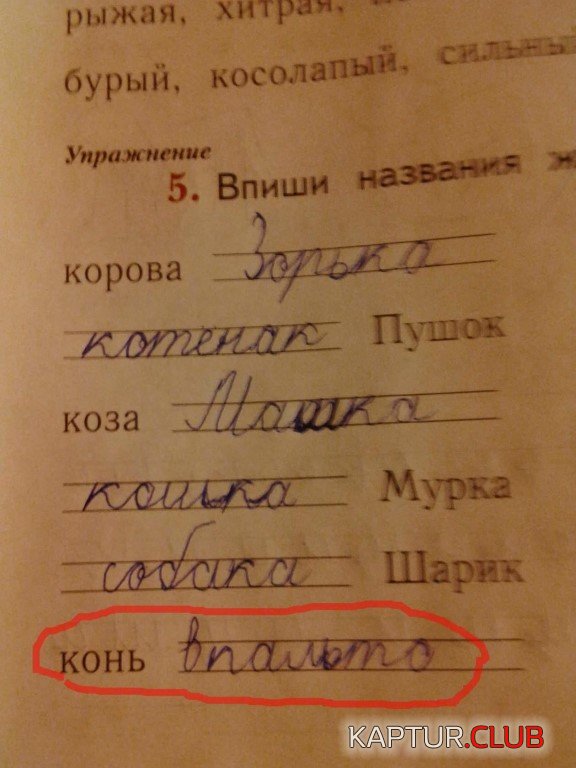 рыжая, хитрая,
бурый, косолапый, сильный
Упражнение
5. Впиши названия ж
корова Зорька
котенак Пушок
коза Машка
кошка Мурка
собака Шарик
конь впальто
KAPTUR.CLUB